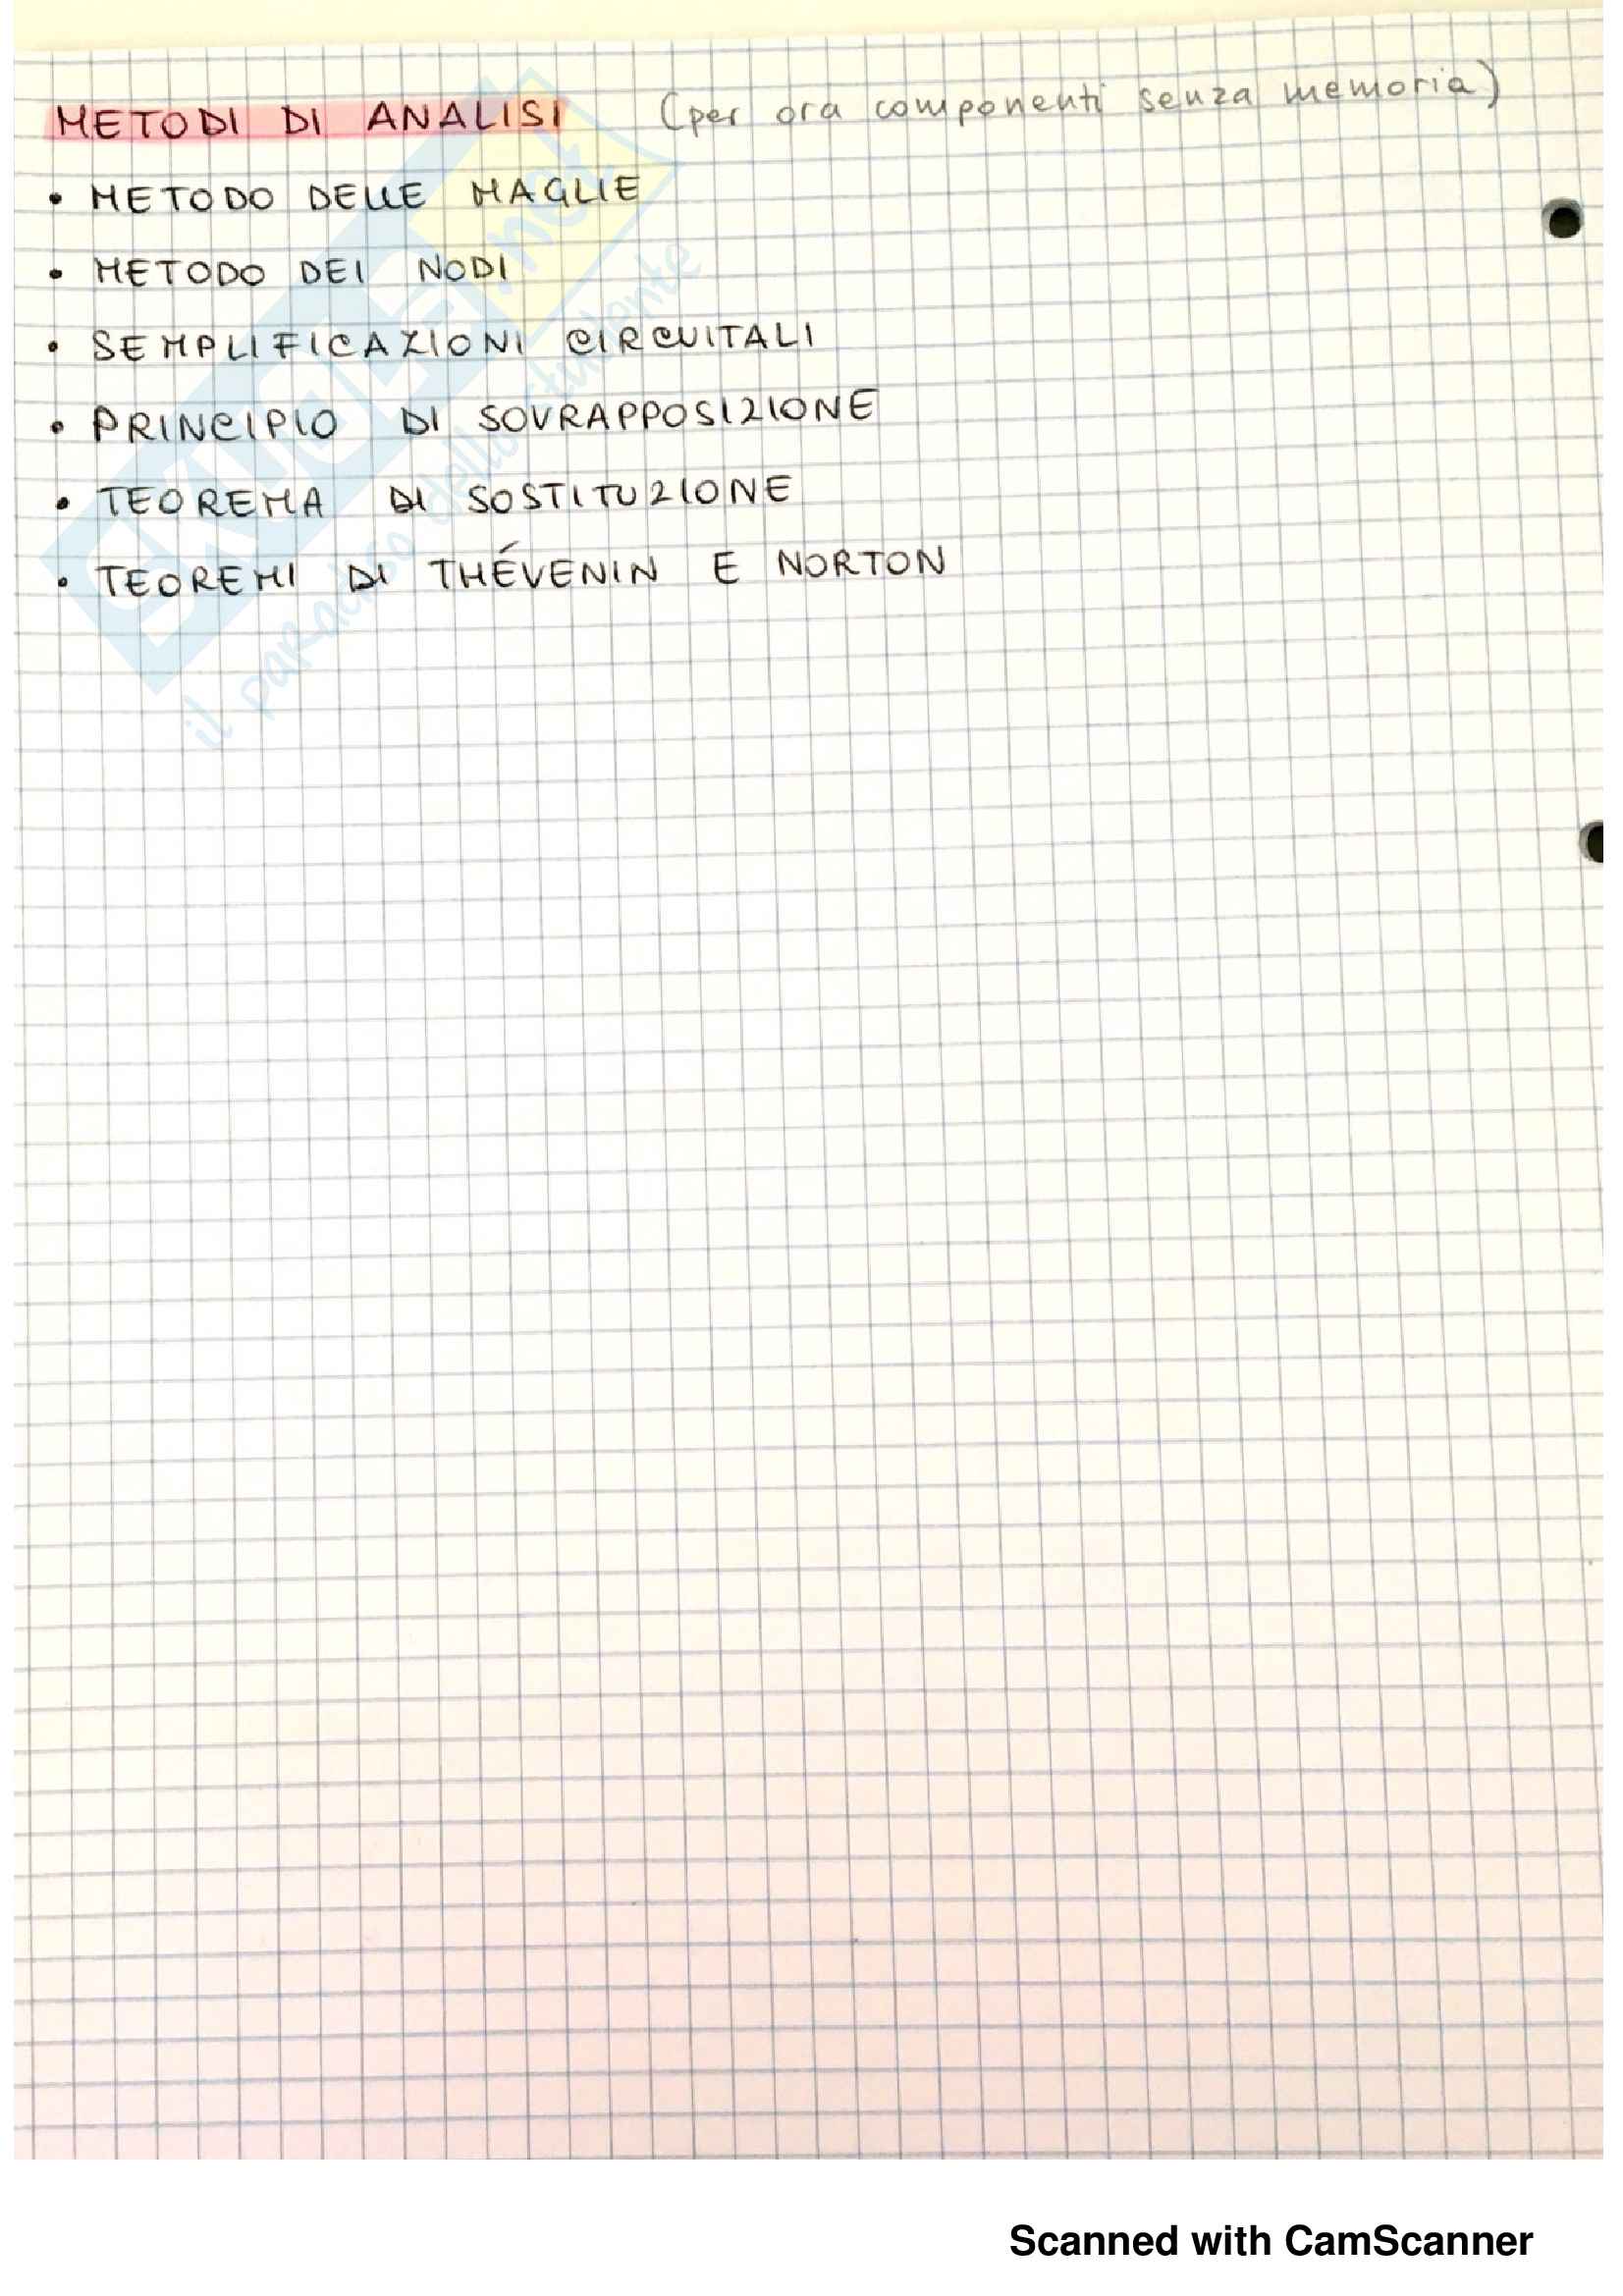 METODI DI ANALISI (per ora componenti senza memoria)
• METODO DELLE MAGLIE
• METODO DEI NODI
• SEMPLIFICAZIONI CIRCUITALI
• PRINCIPIO DI SOVRAPPOSIZIONE
• TEOREMA DI SOSTITUZIONE
• TEOREMI DI THÉVENIN E NORTON
SKUOLA.net
il paradiso dello studente
Scanned with CamScanner